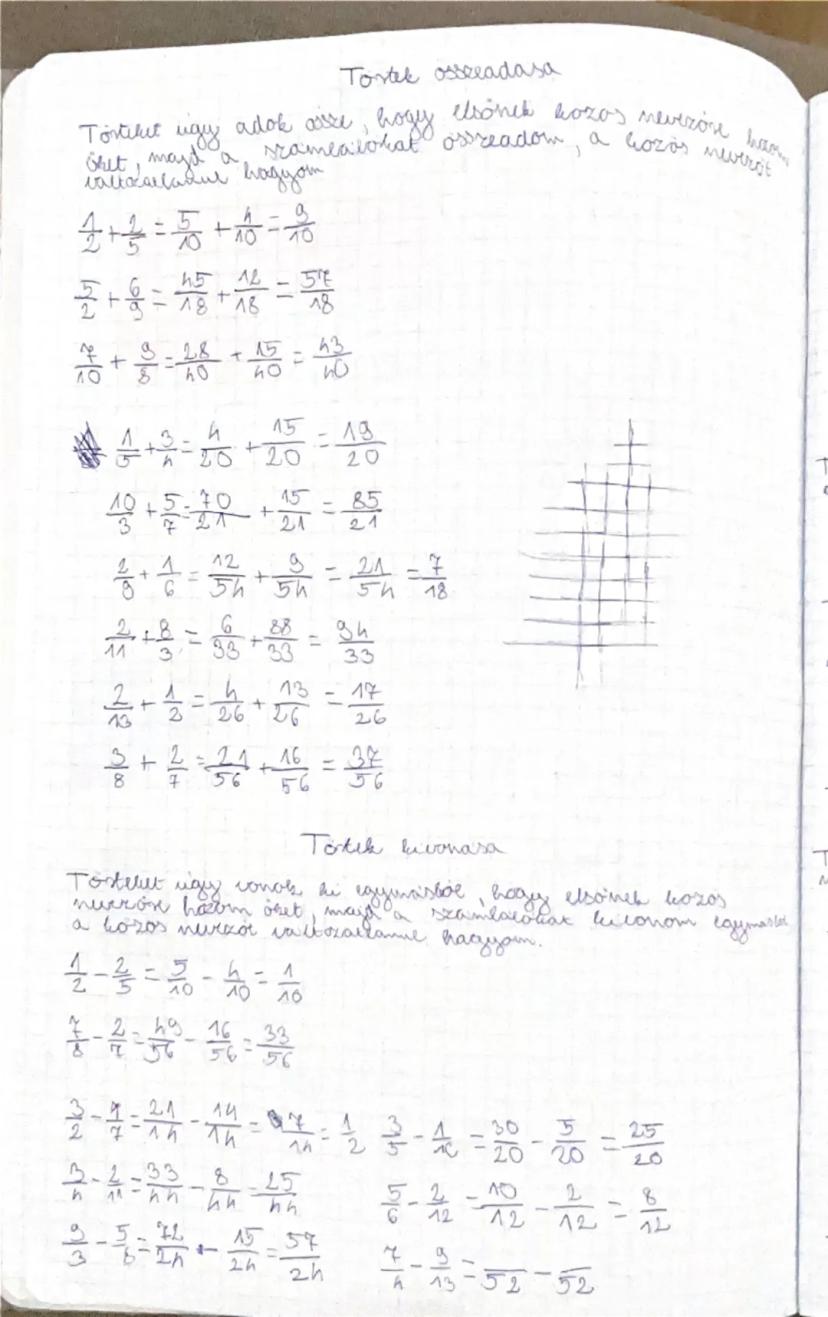 Törtek összeadása
Törteket úgy adok össze, hogy elsőnek közös nevezőre hozom
őket, majd a számlálókat összeadom, a közös nevezőt
változatlanul hagyom
1/2 + 2/5 = 5/10 + 4/10 = 9/10
5/2 + 6/9 = 45/18 + 12/18 = 57/18
7/10 + 3/8 = 28/40 + 15/40 = 43/40
1/5 + 3/4 = 4/20 + 15/20 = 19/20
10/3 + 5/7 = 70/21 + 15/21 = 85/21
2/9 + 1/6 = 12/54 + 9/54 = 21/54 = 7/18
2/11 + 8/3 = 6/33 + 88/33 = 94/33
2/13 + 1/2 = 4/26 + 13/26 = 17/26
3/8 + 2/7 = 21/56 + 16/56 = 37/56
Törtek kivonása
Törteket úgy vonok ki egymásból, hogy elsőnek közös
nevezőre hozom őket, majd a számlálókat kivonom egymásból
a közös nevezőt változatlanul hagyom.
1/2 - 2/5 = 5/10 - 4/10 = 1/10
7/8 - 2/7 = 49/56 - 16/56 = 33/56
3/2 - 7/7 = 21/14 - 14/14 = 7/14 = 1/2
3/5 - 1/ = 30/20 - 5/20 = 25/20
3/4 - 2/11 = 33/44 - 8/44 = 25/44
5/6 - 2/12 = 10/12 - 2/12 = 8/12
9/3 - 5/8 = 72/24 - 15/24 = 57/24
7/4 - 9/13 = /52 - /52